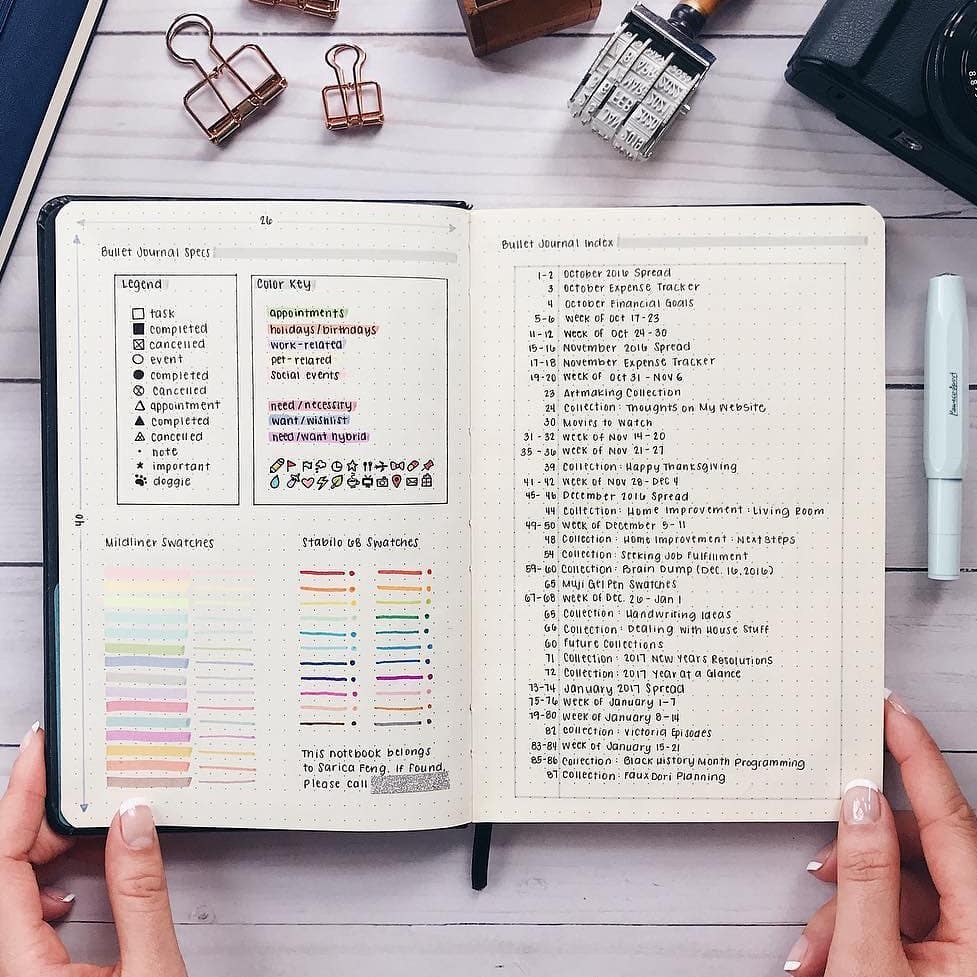 26
40
Bullet Journal Specs
Legend
task
completed
cancelled
event
completed
Cancelled
appointment
Completed
Cancelled
note
important
doggie
Color Key
appointments
holidays/birthdays
work-related
pet-related
social events
need/necessity
want/wishlist
need/want hybrid
Mildliner Swatches
Stabilo 68 Swatches
This notebook belongs
to Sarica Feng. If found,
Please call
Bullet Journal Index
1-2 October 2016 Spread
3 October Expense Tracker
4 October Financial Goals
5-6 Week of Oct 17-23
11-12 Week of Oct 24-30
15-16 November 2016 Spread
17-18 November Expense Tracker
19-20 Week of Oct 31 - Nov 6
23 Artmaking Collection
24 Collection: Thoughts on My Website
30 Movies to Watch
31-32 Week of Nov 14-20
35-36 Week of Nov 21-27
39 Collection: Happy Thanksgiving
41-42 Week of Nov 28-Dec 4
45-46 December 2016 Spread
44 Collection: Home Improvement: Living Room
49-50 Week of December 5-11
48 Collection: Home Improvement: Next Steps
54 Collection: Seeking Job Fulfillment
59-60 Collection: Brain Dump (Dec. 16, 2016)
65 Muji Gel Pen Swatches
67-68 Week of Dec. 26 - Jan 1
65 Collection: Handwriting Ideas
66 Collection: Dealing with House Stuff
60 Future Collections
71 Collection: 2017 New Years Resolutions
72 Collection: 2017 Year at a Glance
73-74 January 2017 Spread
75-76 Week of January 1-7
79-80 Week of January 8-14
82 Collection: Victoria Episodes
83-84 Week of January 15-21
85-86 Collection: Black History Month Programming
87 Collection: Faux Dori Planning